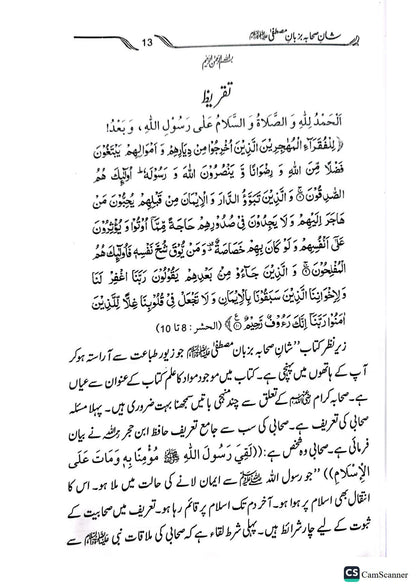 شانِ صحابہ بزبانِ مصطفیٰ ﷺ 13
بسم اللہ الرحمن الرحیم
تقریظ
اَلْحَمْدُ لِلّٰهِ وَ الصَّلَاةُ وَ السَّلَامُ عَلٰى رَسُوْلِ اللهِ، وَ بَعْدُ!
﴿لِلْفُقَرَآءِ الْمُهٰجِرِيْنَ الَّذِيْنَ اُخْرِجُوْا مِنْ دِيَارِهِمْ وَ اَمْوَالِهِمْ يَبْتَغُوْنَ
فَضْلًا مِّنَ اللهِ وَ رِضْوَانًا وَّ يَنْصُرُوْنَ اللهَ وَ رَسُوْلَهٗ ؕ اُولٰٓئِكَ هُمُ
الصّٰدِقُوْنَ ۞ وَ الَّذِيْنَ تَبَوَّؤُ الدَّارَ وَ الْاِيْمَانَ مِنْ قَبْلِهِمْ يُحِبُّوْنَ مَنْ
هَاجَرَ اِلَيْهِمْ وَ لَا يَجِدُوْنَ فِيْ صُدُوْرِهِمْ حَاجَةً مِّمَّا اُوْتُوْا وَ يُؤْثِرُوْنَ
عَلٰٓى اَنْفُسِهِمْ وَ لَوْ كَانَ بِهِمْ خَصَاصَةٌ ؕ وَ مَنْ يُّوْقَ شُحَّ نَفْسِهٖ فَاُولٰٓئِكَ هُمُ
الْمُفْلِحُوْنَ ۞ وَ الَّذِيْنَ جَآءُوْ مِنْ بَعْدِهِمْ يَقُوْلُوْنَ رَبَّنَا اغْفِرْ لَنَا
وَ لِاِخْوَانِنَا الَّذِيْنَ سَبَقُوْنَا بِالْاِيْمَانِ وَ لَا تَجْعَلْ فِيْ قُلُوْبِنَا غِلًّا لِّلَّذِيْنَ
اٰمَنُوْا رَبَّنَآ اِنَّكَ رَءُوْفٌ رَّحِيْمٌ ۞﴾ (الحشر: 8 تا 10)
زیرِ نظر کتاب ”شانِ صحابہ بزبانِ مصطفیٰ ﷺ“ جو زیورِ طباعت سے آراستہ ہو کر
آپ کے ہاتھوں میں پہنچی ہے۔ کتاب میں موجود مواد کا علم کتاب کے عنوان سے عیاں
ہے۔ صحابہ کرام کے تعلق سے چند منہجی باتیں سمجھنا بہت ضروری ہیں۔ پہلا مسئلہ
صحابی کی تعریف ہے۔ صحابی کی سب سے جامع تعریف حافظ ابن حجر نے بیان
فرمائی ہے۔ صحابی وہ شخص ہے: ((لَقِيَ رَسُوْلَ اللهِ ﷺ مُؤْمِنًا بِهٖ وَ مَاتَ عَلَى
الْاِسْلَامِ)) ”جو رسول اللہ ﷺ سے ایمان لانے کی حالت میں ملا ہو۔ اس کا
انتقال بھی اسلام پر ہوا ہو۔ آخر دم تک اسلام پر قائم رہا ہو۔ تعریف میں صحابیت کے
ثبوت کے لیے چار شرائط ہیں۔ پہلی شرط لقاء ہے کہ صحابی کی ملاقات نبی ﷺ سے
CS CamScanner